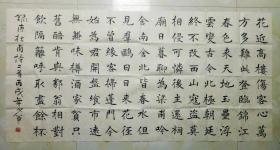 花近高樓傷客心萬
方多難此登臨錦江
春色來天地玉壘浮
雲變古今北極朝廷
終不改西山寇盜莫
相侵可憐後主還祠
廟日暮聊為梁甫吟
舍南舍北皆春水但
見群鷗日日來花徑
不曾緣客掃蓬門今
始為君開盤飧市遠
無兼味樽酒家貧只
舊醅肯與鄰翁相對
飲隔籬呼取盡餘杯
錄唐杜甫詩二首丙戌年